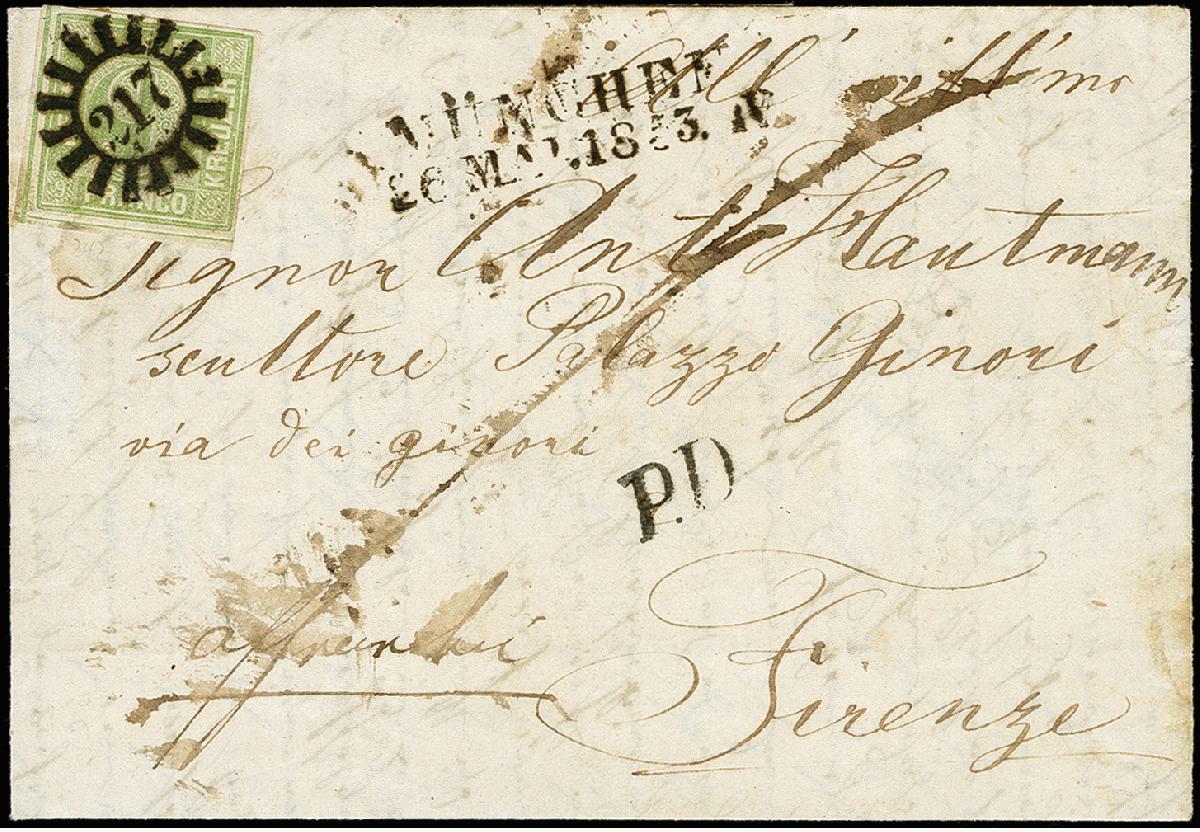 217
FRANCO
KREUZER
MÜNCHEN
26 MAI. 1853. IV
All' ill'mo
Signor Ant. Hautmann
scultore Palazzo Ginori
via dei ginori
P.D
affranchi
Firenze